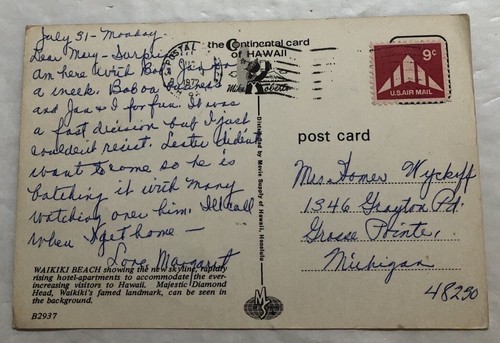 July 31 - Monday
Dear Mary - Surprise
am here with Bob, Jan for
a week. Bob on business
and Jan & I for fun. It was
a fast decision but I just
couldn't resist. Lester didn't
want to come so he is
batching it with Mary
watching over him. I'll call
when I get home -
Love, Margaret
WAIKIKI BEACH showing the new skyline, rapidly
rising hotel-apartments to accommodate the ever-
increasing visitors to Hawaii. Majestic Diamond
Head, Waikiki's famed landmark, can be seen in
the background.
B2937
the Continental card
OF HAWAII
POSTAL
1972
Mike Roberts
Distributed by Movie Supply of Hawaii, Honolulu
MS
9c
U.S. AIR MAIL
post card
Mrs. Homer Wyckoff
1346 Grayton Rd.
Grosse Pointe,
Michigan
48230